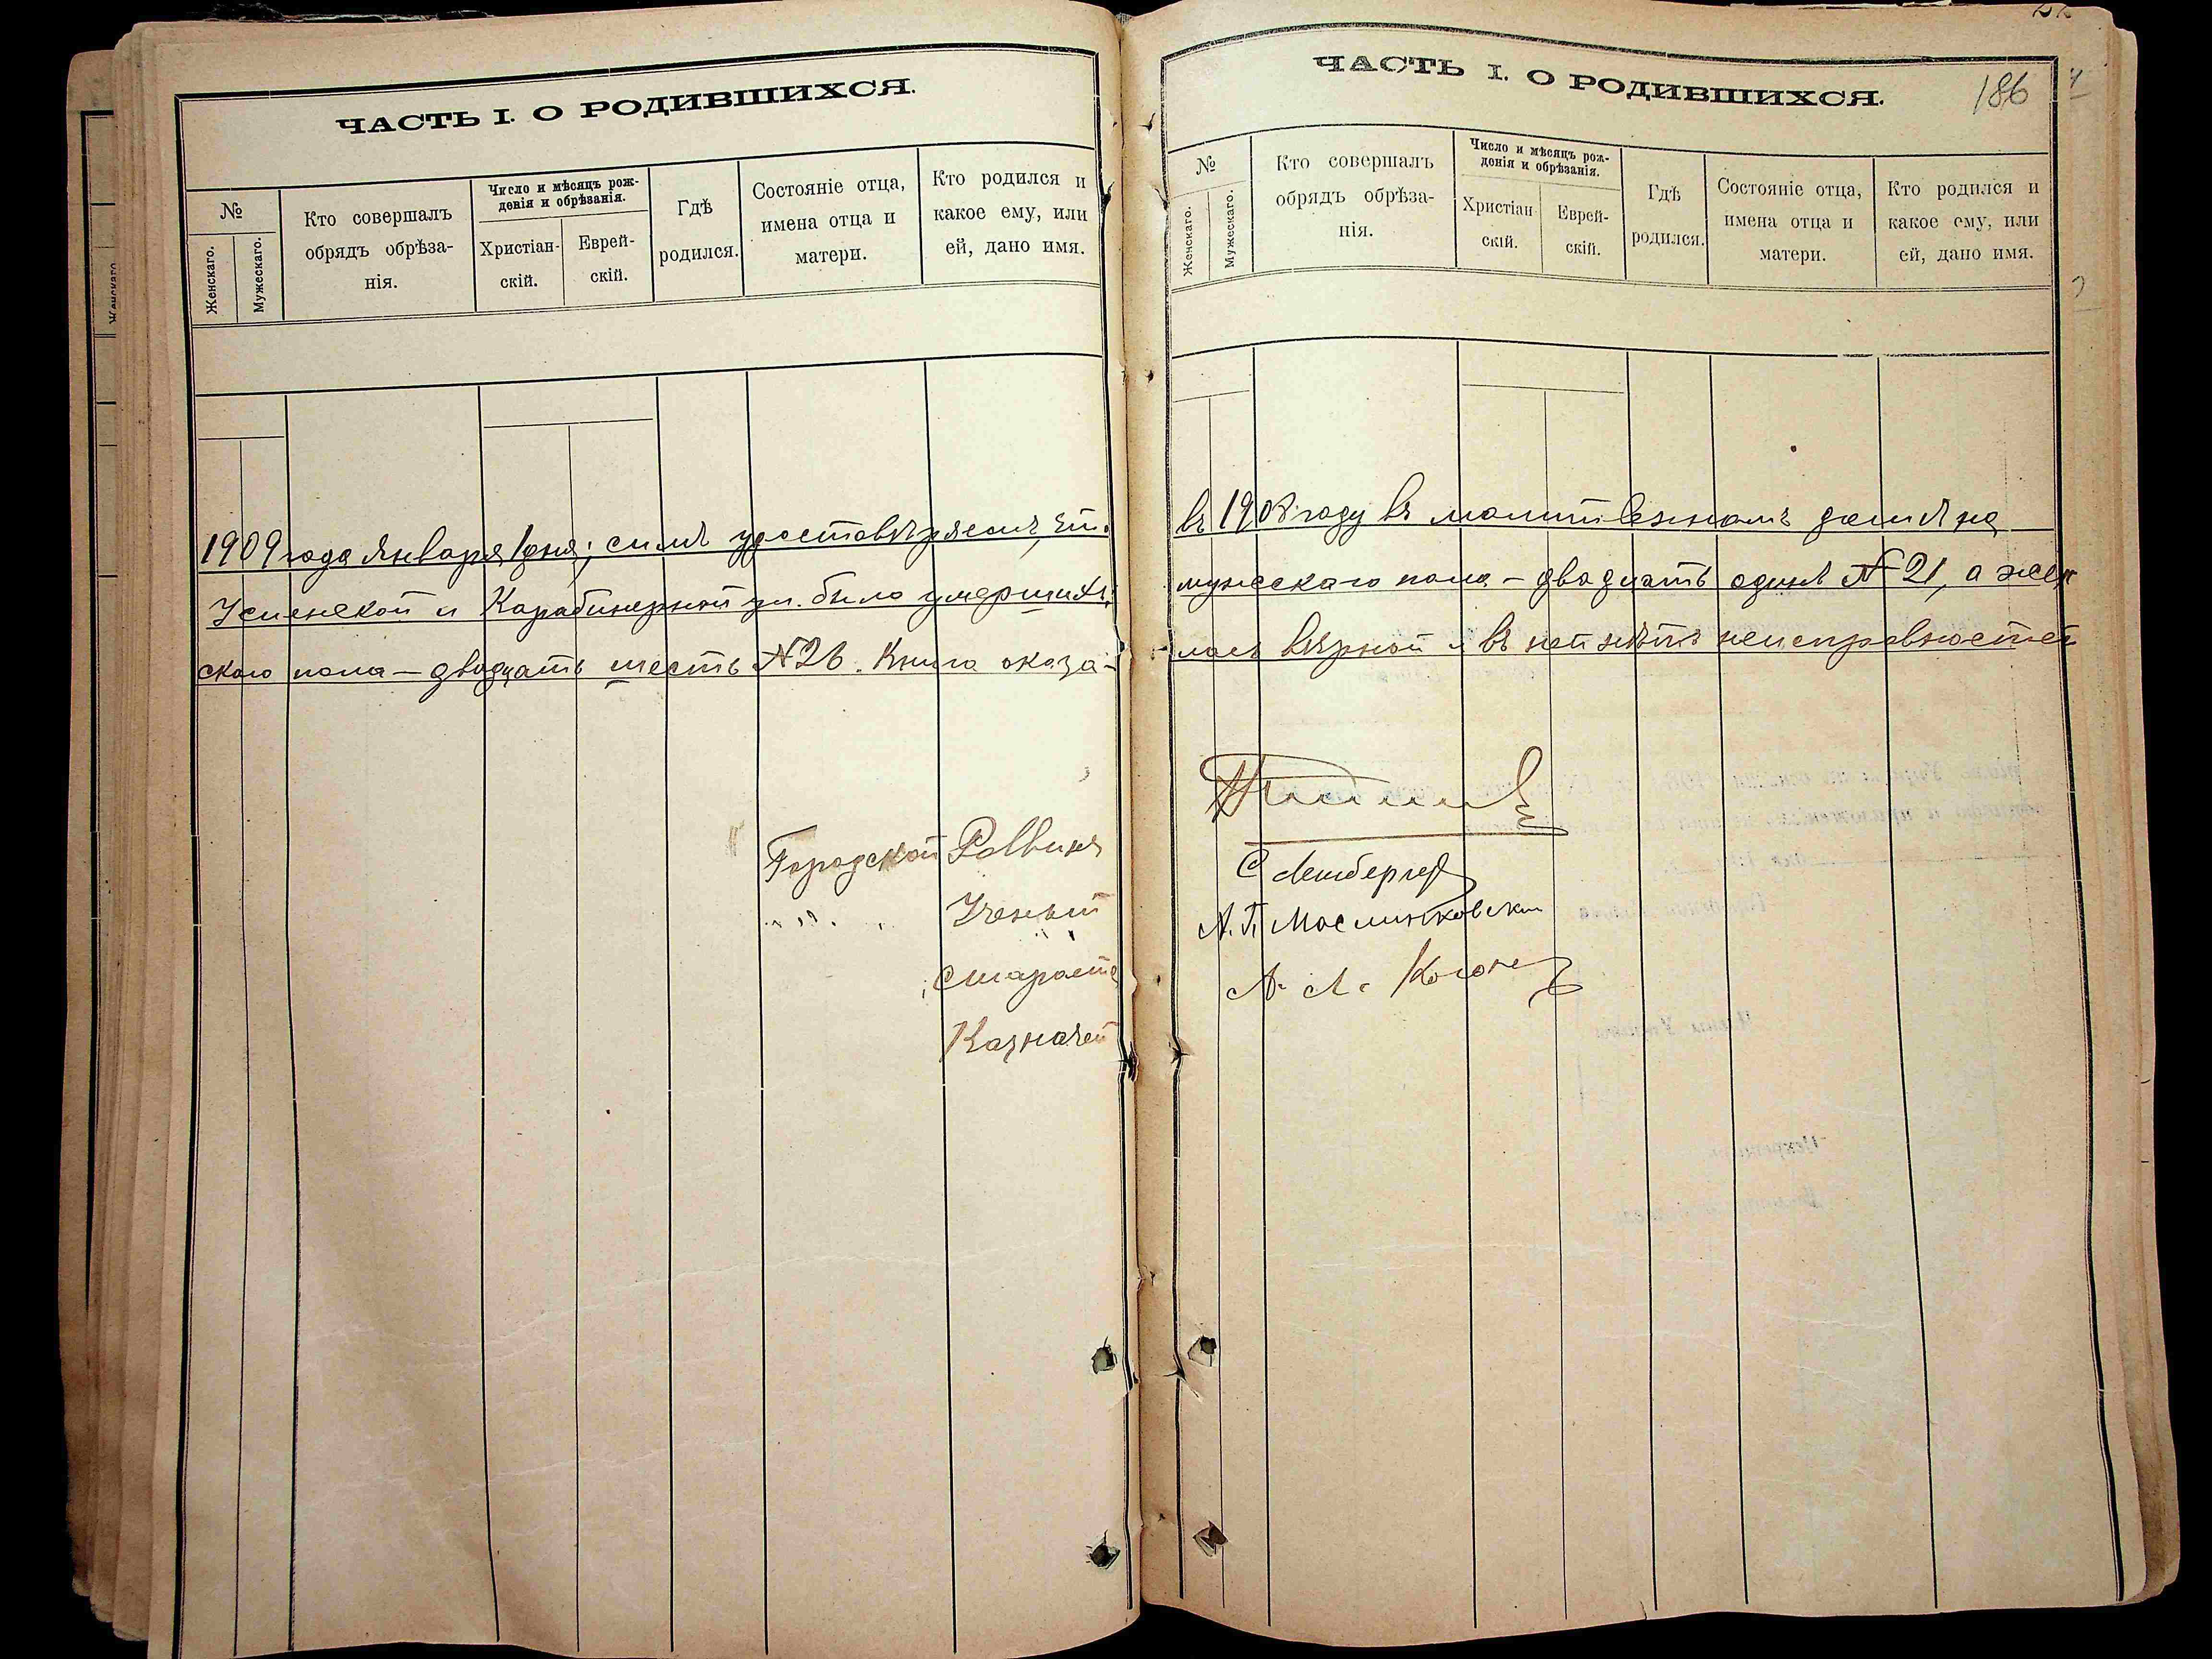 ЧАСТЬ I. О РОДИВШИХСЯ.
№
Женскаго.
Мужескаго.
Кто совершалъ
обрядъ обрѣза-
нія.
Число и мѣсяцъ рож-
денія и обрѣзанія.
Христіан-
скій.
Еврей-
скій.
Гдѣ
родился.
Состояніе отца,
имена отца и
матери.
Кто родился и
какое ему, или
ей, дано имя.
1909 года Января 1 дня; симъ удостовѣряемъ, что
Успенской и Карабинерной ул. было умершихъ:
скаго пола — двадцать шесть № 26. Книга оказа-
Городской Раввинъ
Ученый
Староста
Казначей
186
ЧАСТЬ I. О РОДИВШИХСЯ.
№
Женскаго.
Мужескаго.
Кто совершалъ
обрядъ обрѣза-
нія.
Число и мѣсяцъ рож-
денія и обрѣзанія.
Христіан-
скій.
Еврей-
скій.
Гдѣ
родился.
Состояніе отца,
имена отца и
матери.
Кто родился и
какое ему, или
ей, дано имя.
въ 1908 году въ молитвенномъ домѣ на
мужескаго пола — двадцать одинъ № 21, а жен
лась вѣрной и въ ней нѣтъ неисправностей
С Лемберг
А. Г. Маслинковски
А. Л. Коган